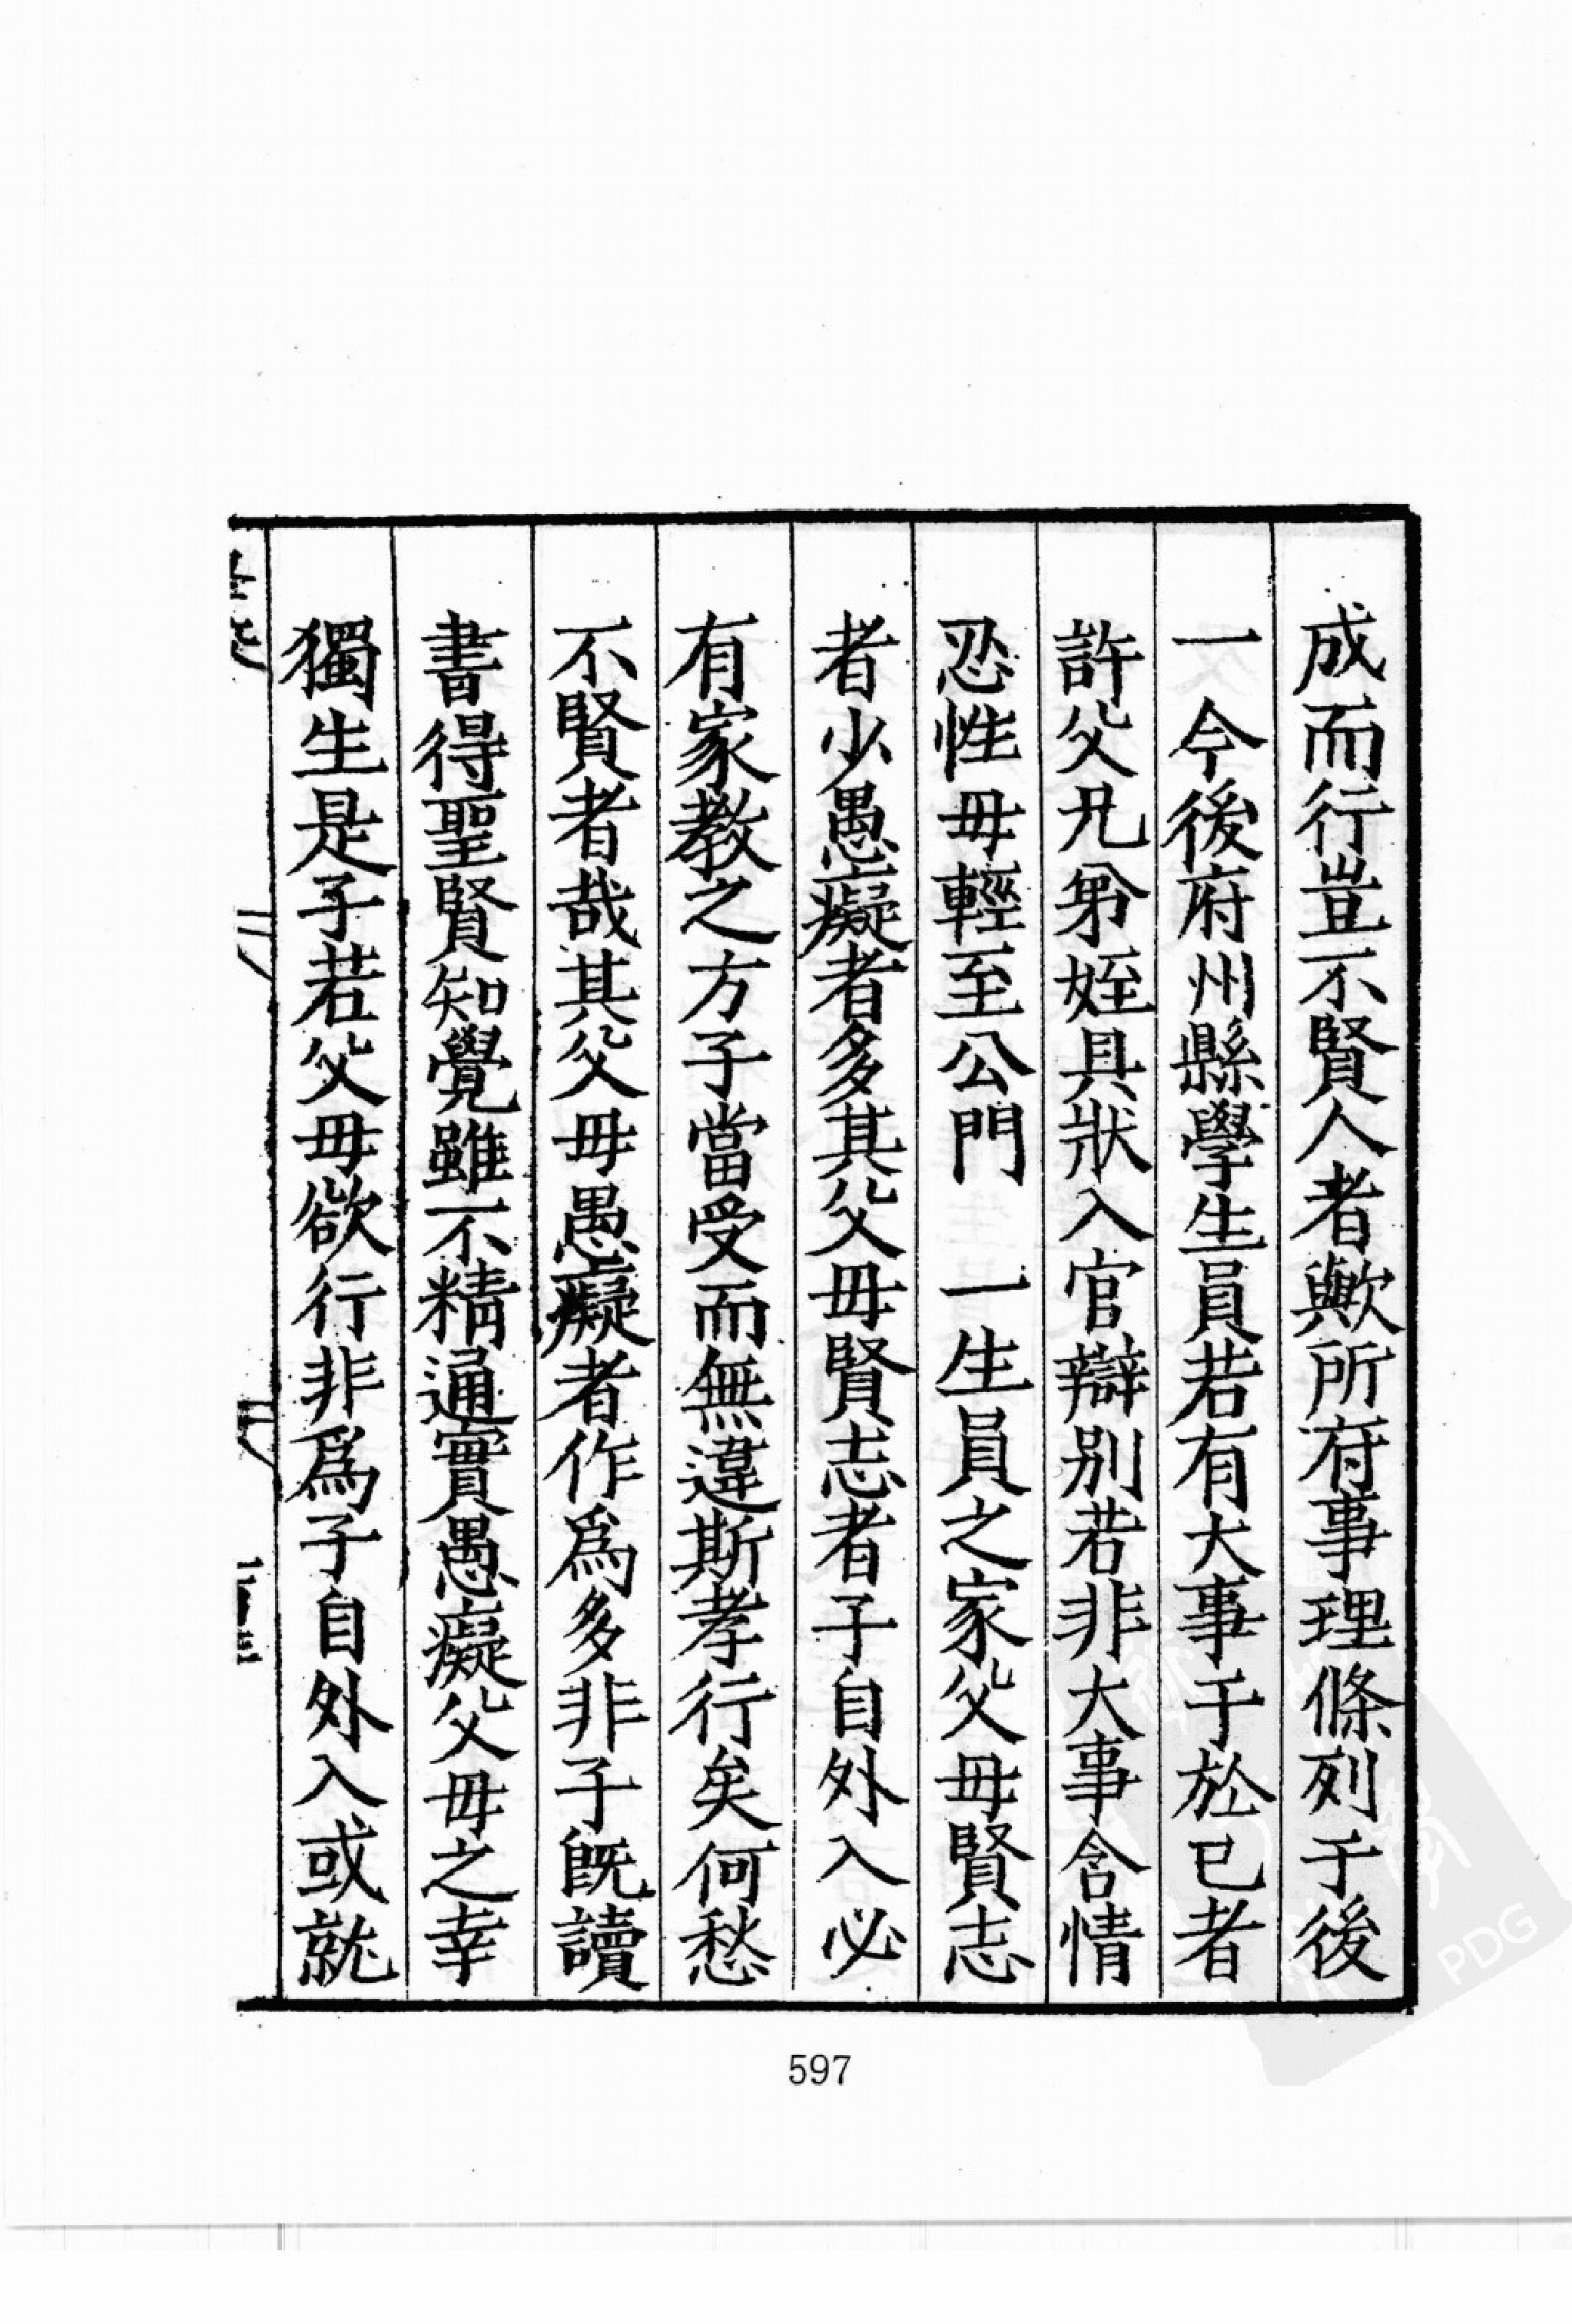 成而行豈不賢人者歟所府事理條列于後
一今後府州縣學生員若有大事于於已者
許父兄弟姪具狀入官辯别若非大事含情
忍性毋輕至公門　一生員之家父母賢志
者少愚癡者多其父母賢志者子自外入必
有家教之方子當受而無違斯孝行矣何愁
不賢者哉其父母愚癡者作爲多非子既讀
書得聖賢知覺雖不精通實愚癡父母之幸
獨生是子若父母欲行非爲子自外入或就
597
PDG